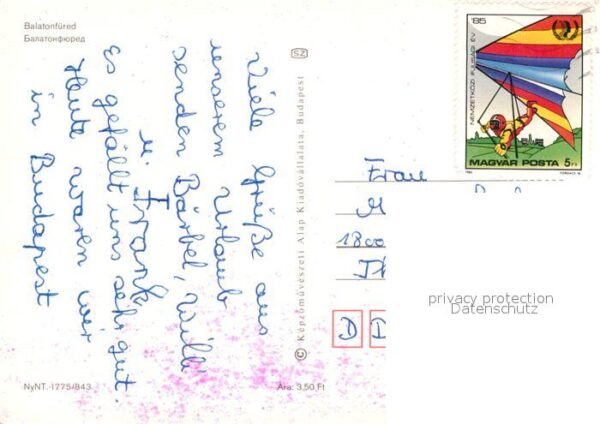 Balatonfüred
Балатонфюред
Viele Grüße aus
unserem Urlaub
senden Bärbel, Willi
u. Frank
Es gefällt uns sehr gut.
Heute waren wir
in Budapest
SZ
© Képzőművészeti Alap Kiadóvállalata, Budapest
NyNT.-1775/843.
Ára: 3,50 Ft
'85
NEMZETKÖZI IFJÚSÁGI ÉV
MAGYAR POSTA 5 Ft
Frau
M
1800
D D
privacy protection
Datenschutz